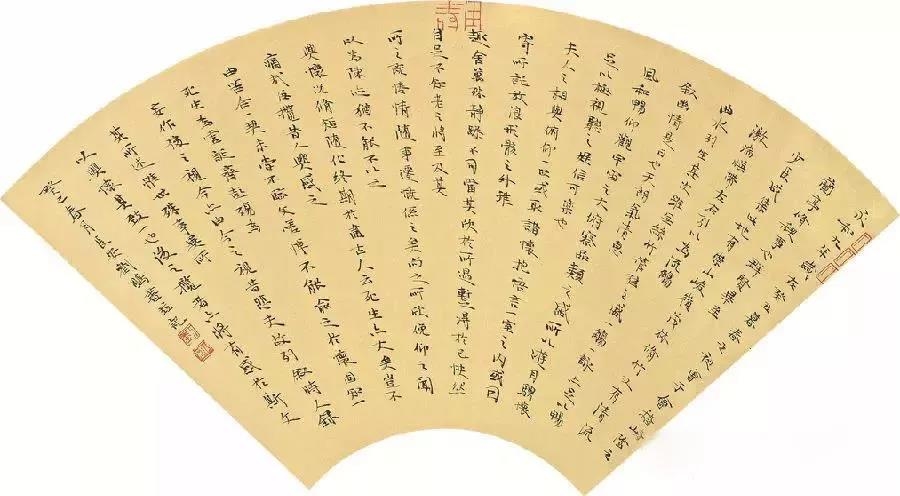 永和九年歲在癸丑暮春之初會于會稽山陰之
蘭亭脩禊事也群賢畢至
少長咸集此地有崇山峻領茂林脩竹又有清流
激湍暎帶左右引以為流觴
曲水列坐其次雖無絲竹管弦之盛一觴一詠亦足以暢
敘幽情是日也天朗氣清惠
風和暢仰觀宇宙之大俯察品類之盛所以遊目騁懷
足以極視聽之娛信可樂也
夫人之相與俯仰一世或取諸懷抱悟言一室之內或因
寄所託放浪形骸之外雖
趣舍萬殊靜躁不同當其欣於所遇暫得於己快然
自足不知老之將至及其
所之既惓情隨事遷感慨係之矣向之所欣俛仰之間
以為陳迹猶不能不以之
興懷況脩短隨化終期於盡古人云死生亦大矣豈不
痛哉每攬昔人興感之
由若合一契未嘗不臨文嗟悼不能喻之於懷固知一
死生為虛誕齊彭殤為
妄作後之視今亦由今之視昔悲夫故列敘時人錄
其所述雖世殊事異所
以興懷其致一也後之攬者亦將有感於斯文
癸巳春月長安劉鵬